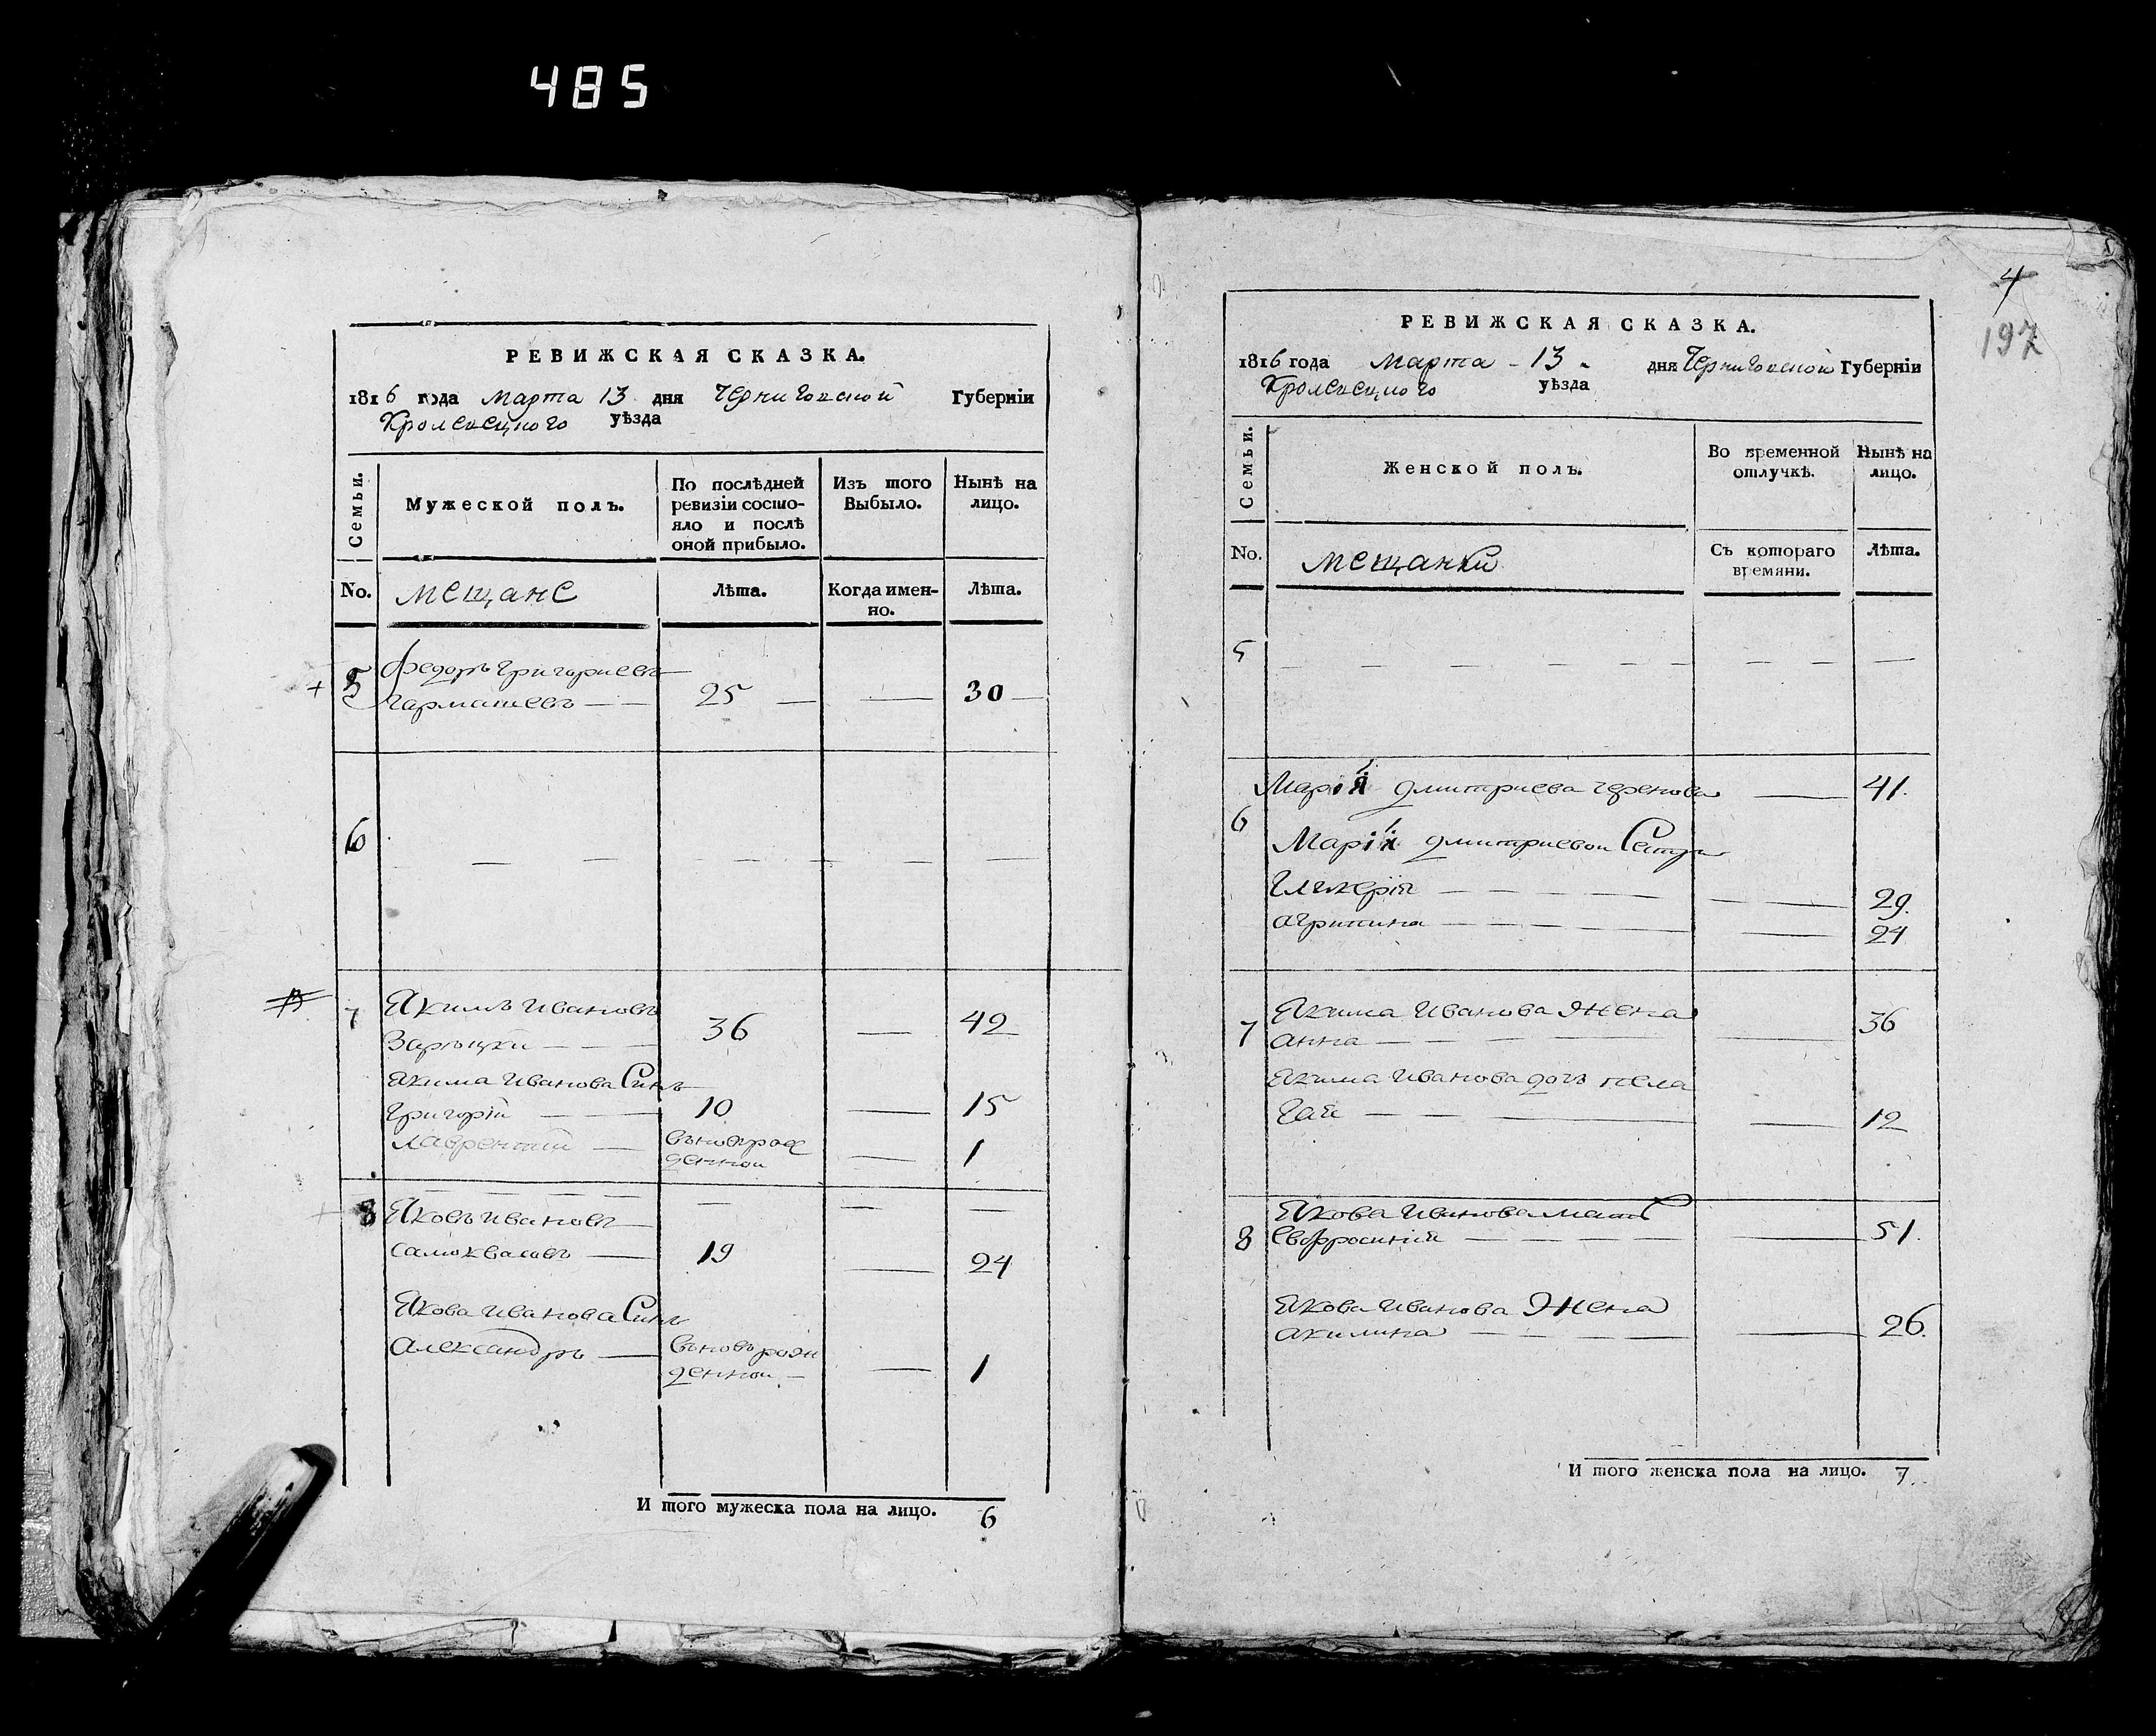 485
РЕВИЖСКАЯ СКАЗКА.
1816 года Марта 13 дня Черниговской Губерніи
Кролевецкого уѣзда
Семьи.
Мужеской полъ.
По послѣдней ревизіи состо-
яло и послѣ
оной прибыло.
Изъ того
Выбыло.
Нынѣ на
лицо.
No.
мещане
Лѣта.
Когда имен-
но.
Лѣта.
5 Федоръ Григориевъ
Гармашевъ 25 30
6
7 Якимъ Ивановъ
Зарѣцкий 36 42
Якима Иванова Синъ
Григорій 10 15
Лаврентий вьновьрож
денной 1
8 Яковъ Ивановъ
Самоквасовъ 19 24
Якова Иванова Синъ
Александръ вьновьрож
денной 1
И того мужеска пола на лицо. 6
4
197
РЕВИЖСКАЯ СКАЗКА.
1816 года Марта 13 дня Черниговской Губерніи
Кролевецкого уѣзда
Семьи.
Женской полъ.
Во временной
отлучкѣ.
Нынѣ на
лицо.
No.
мещанки
Съ котораго
времяни.
Лѣта.
5
Марія Дмитриева 41.
6
Маріи Дмитриевой Сестри
Гликерія 29.
Агрипина 24
7 Якима Иванова Жена 36
Анна
Якима Иванова дочь Пела
Гая 12
8 Якова Иванова мать
Евфросиния 51.
Якова Иванова Жена
Акилина 26.
И того женска пола на лицо. 7